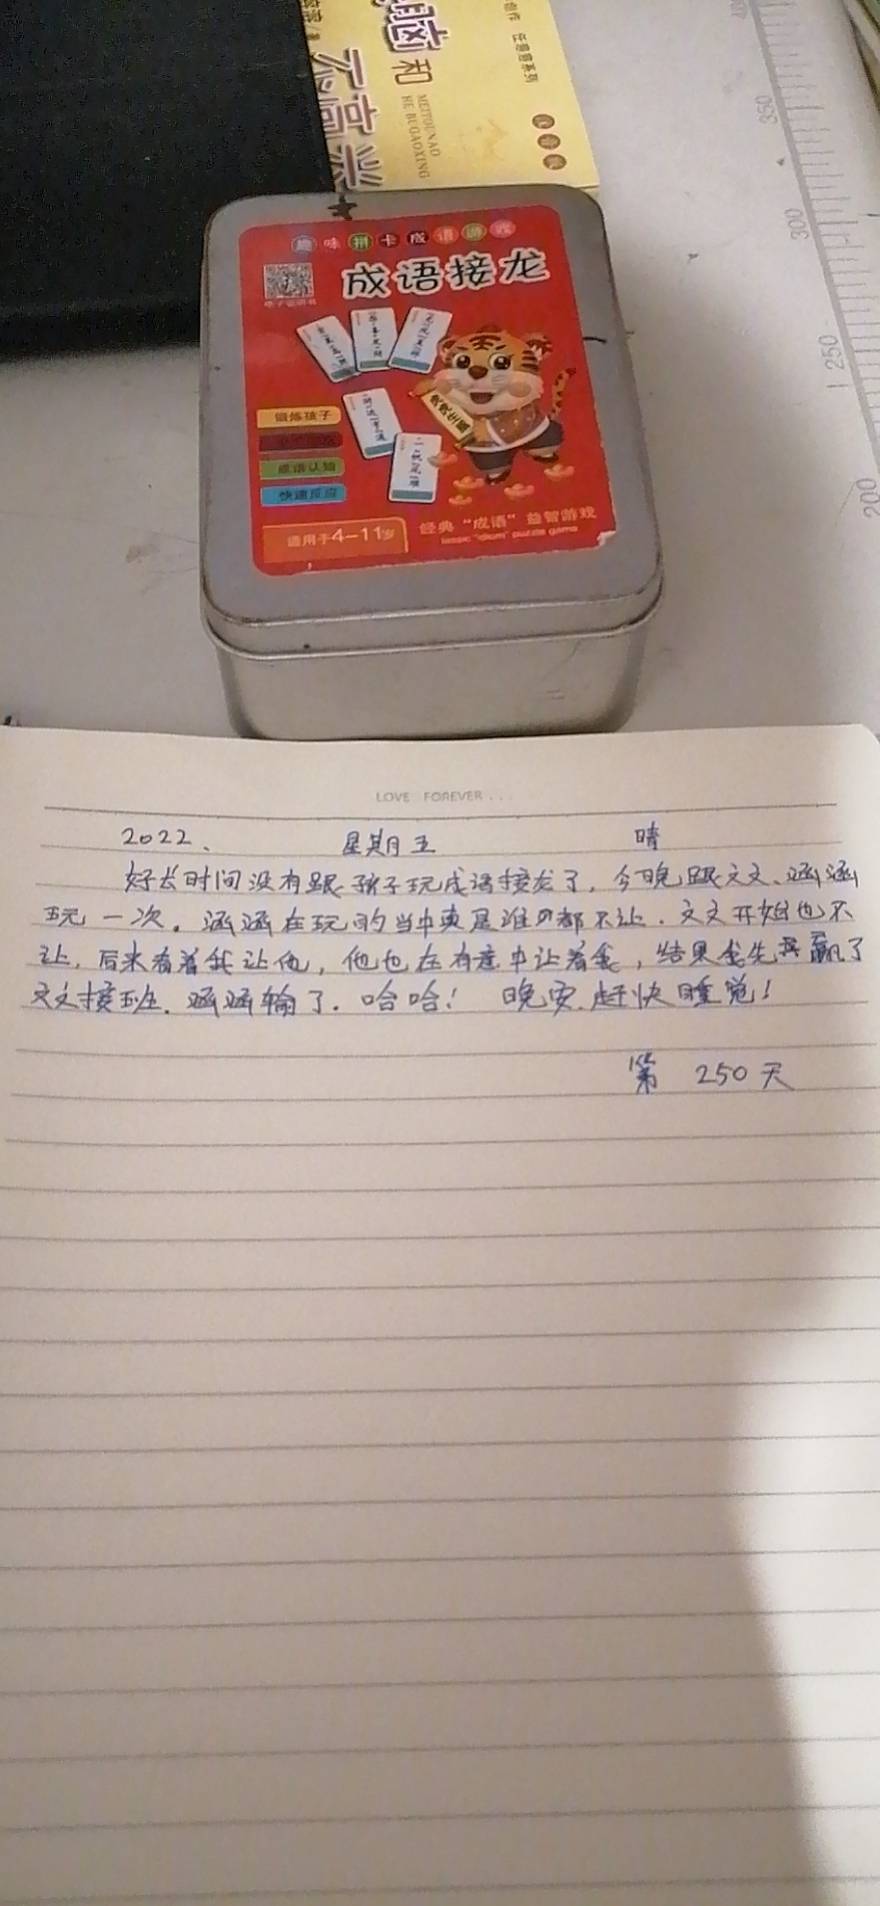 没头脑和
不高兴
MEITOUNAO
HE BUGAOXING
任溶溶系列
注音版
趣味拼卡成语游戏
成语接龙
电子说明书
锻炼孩子
成语认知
快速反应
适用于4-11岁
经典“成语”益智游戏
lassic "idiom" puzzle game
350
300
250
200
LOVE FOREVER . . .
2022、 星期五 晴
好长时间没有跟孩子玩成语接龙了，今晚跟文文、涵涵
玩一次。涵涵在玩的当中真是谁也都不让．文文开始也不
让，后来看着我让他，他也在有意中让着我，结果我先赢了
文文接班．涵涵输了．哈哈！ 晚安．赶快睡觉！
第 250 天